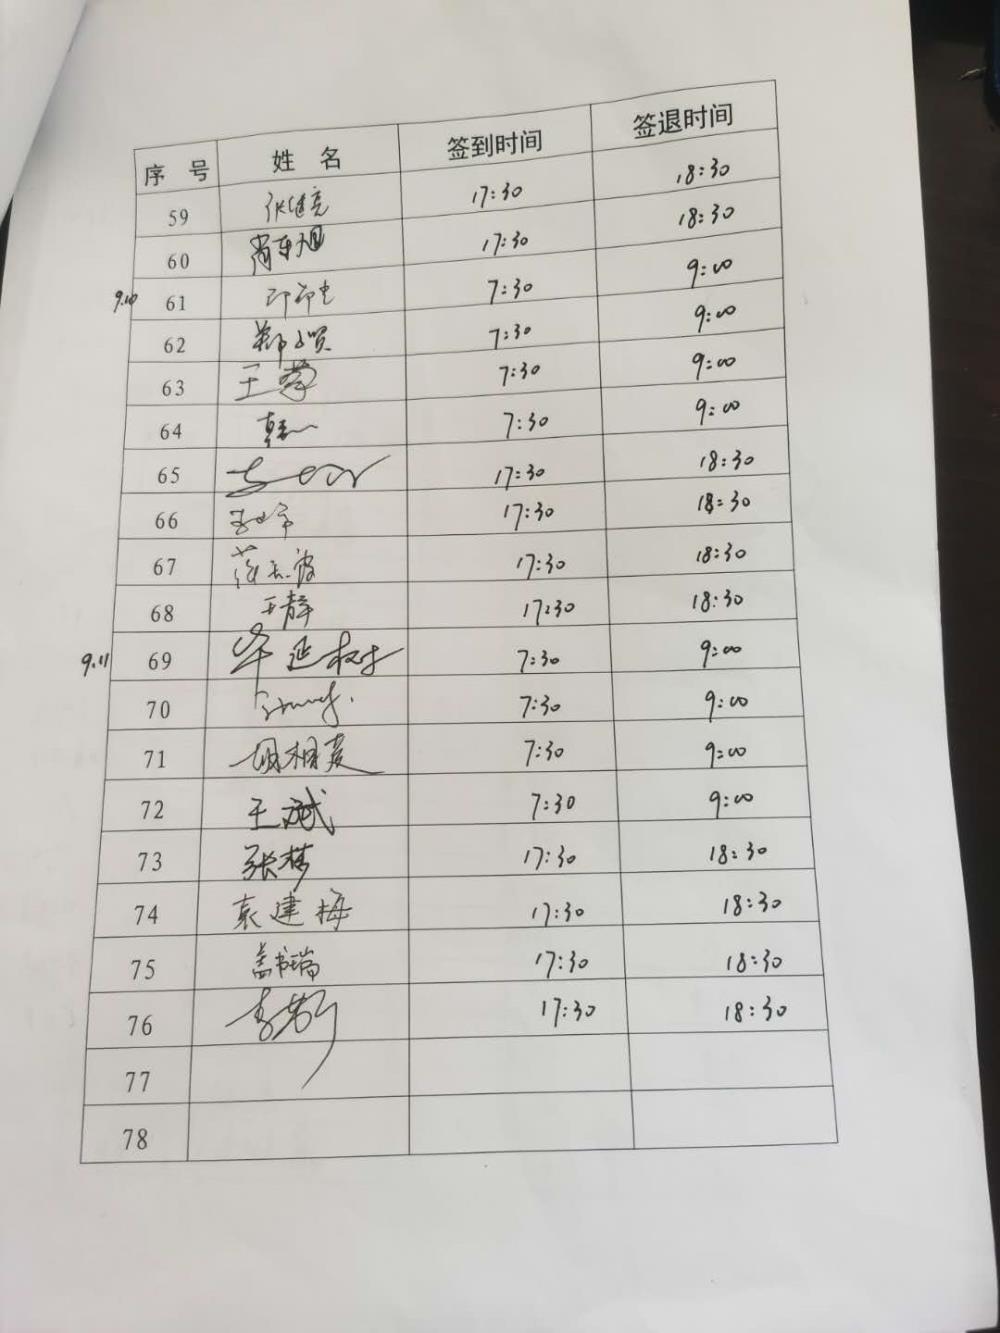 序 号 姓 名 签到时间 签退时间
59 张继亮 17:30 18:30
60 17:30 18:30
9.10 61 7:30 9:00
62 7:30 9:00
63 王 7:30 9:00
64 7:30 9:00
65 17:30 18:30
66 17:30 18:30
67 17:30 18:30
68 王静 17:30 18:30
9.11 69 毕延树 7:30 9:00
70 7:30 9:00
71 7:30 9:00
72 王斌 7:30 9:00
73 张梦 17:30 18:30
74 袁建梅 17:30 18:30
75 盖书瑞 17:30 18:30
76 李 17:30 18:30
77
78